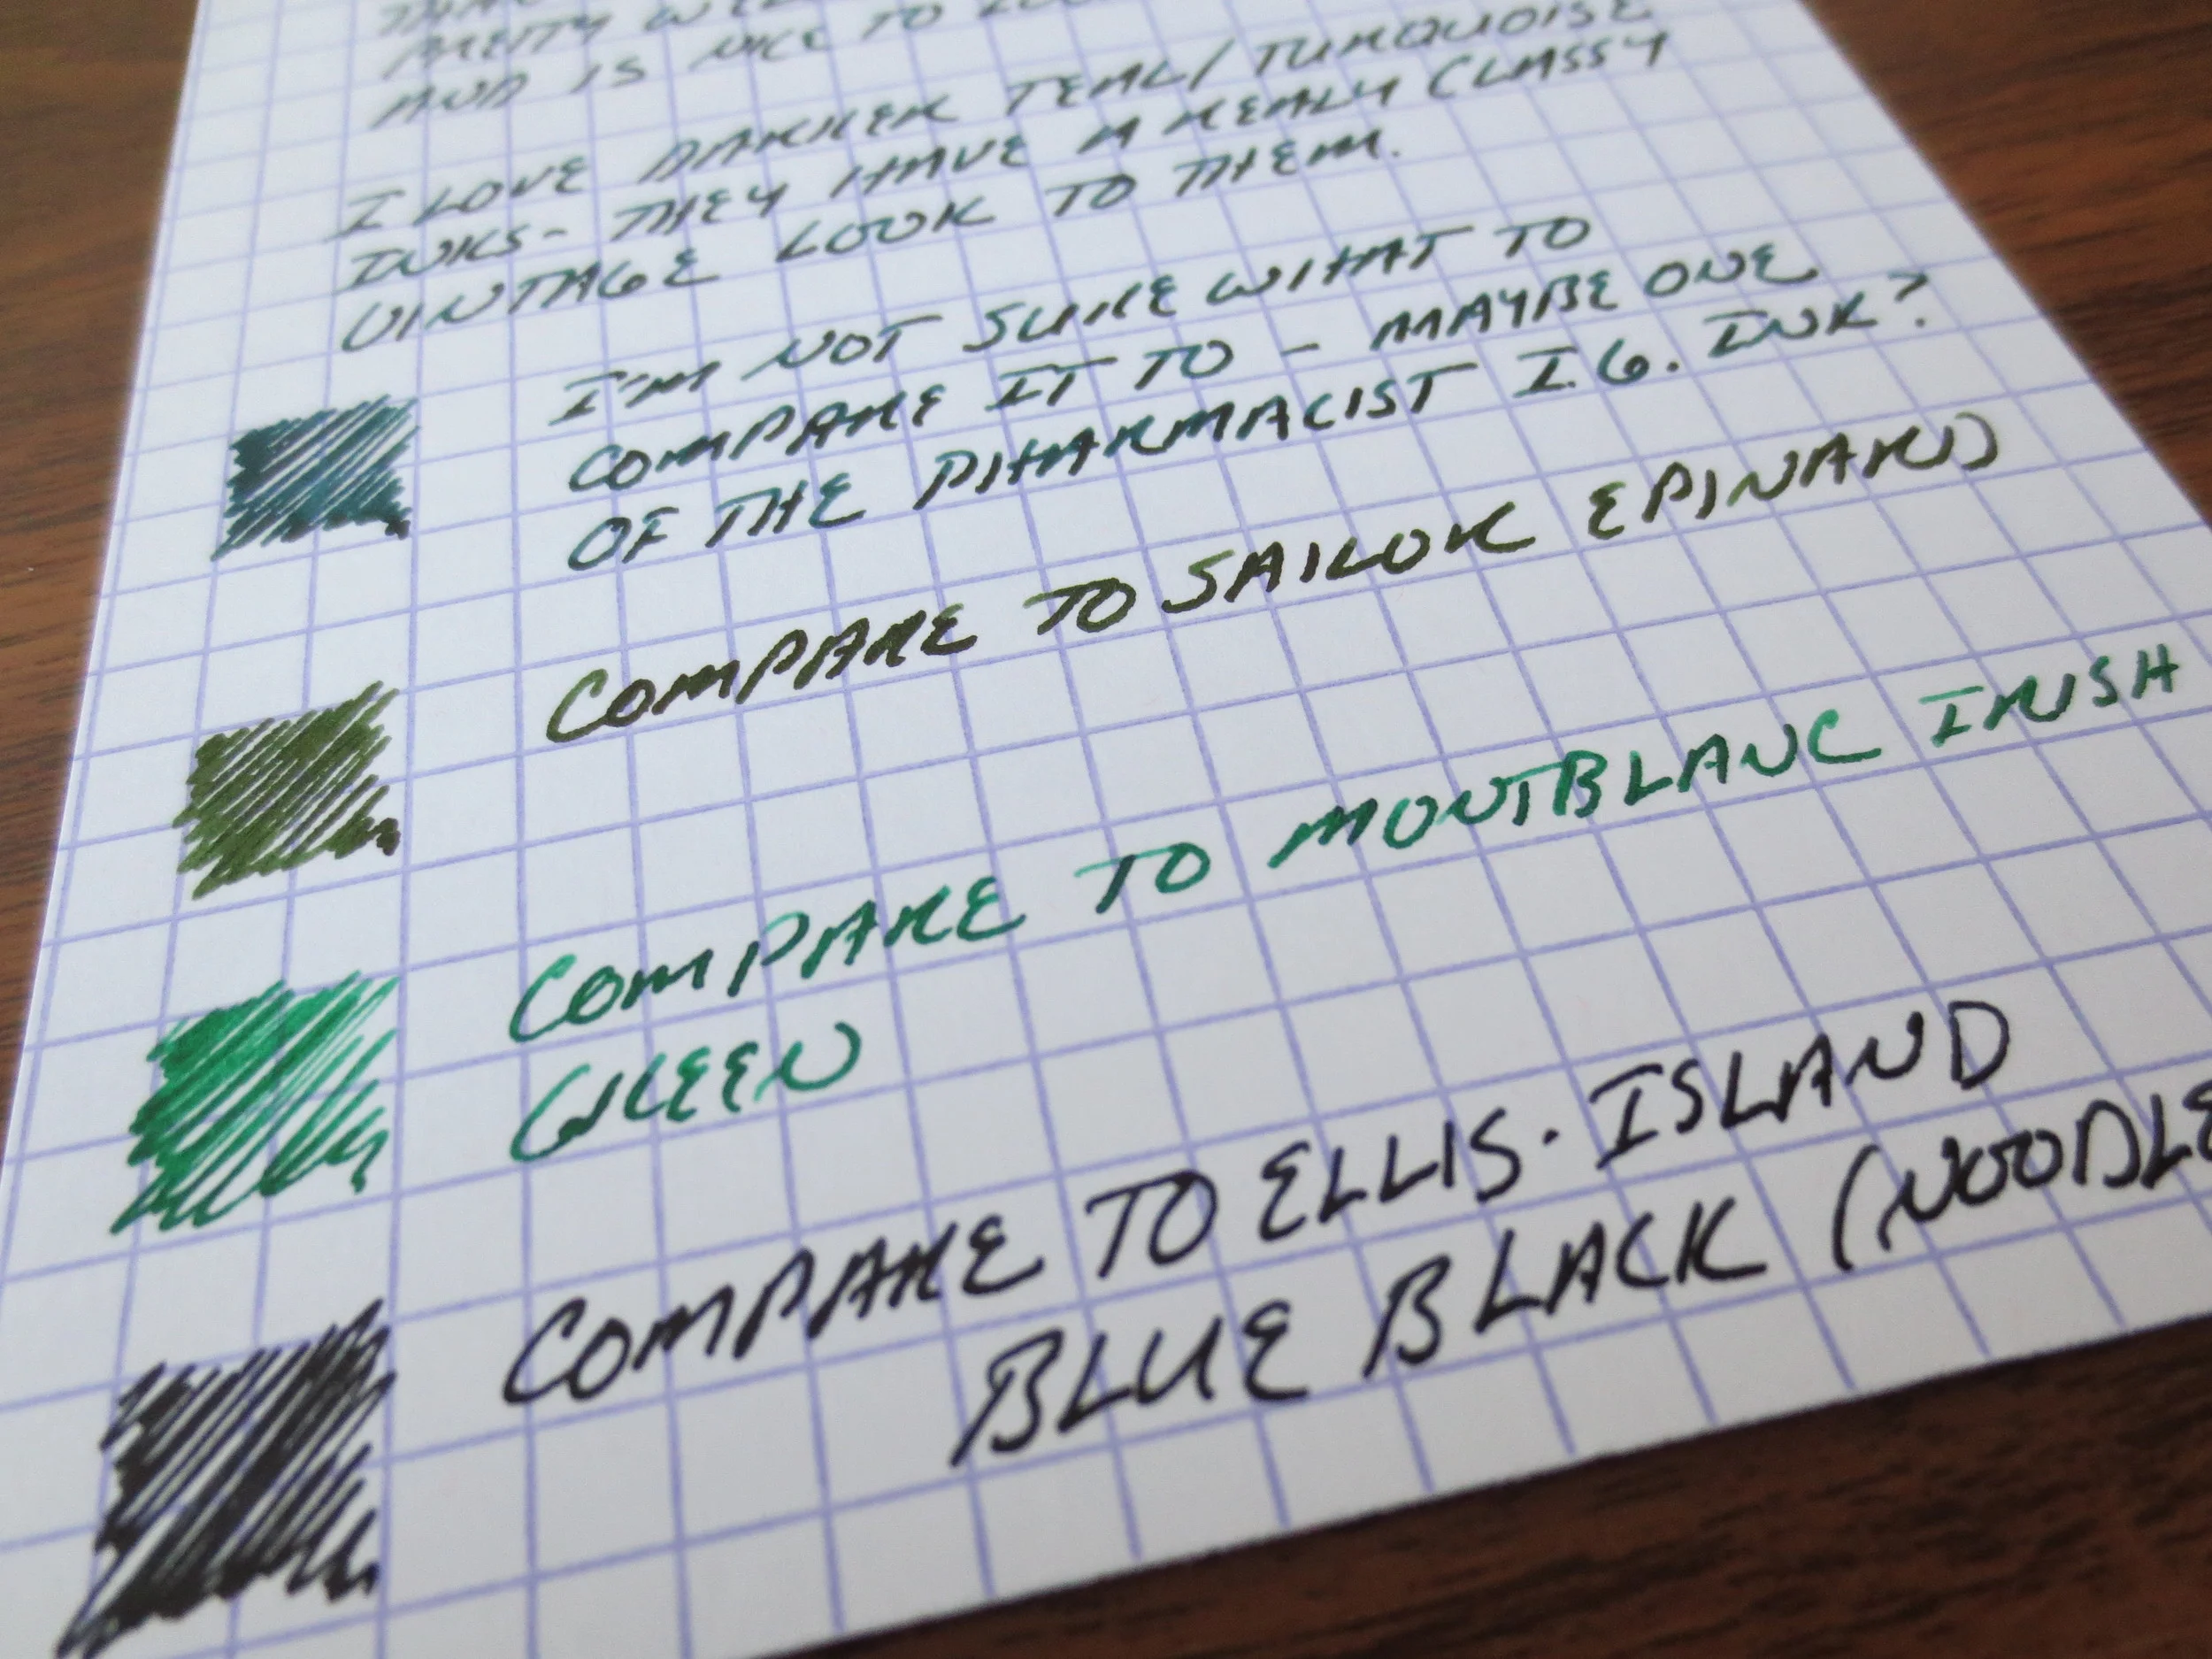 PRETTY
AND IS NICE TO
I LOVE DARKER TEAL/TURQUOISE
INKS - THEY HAVE A REALLY CLASSY
VINTAGE LOOK TO THEM.
I'M NOT SURE WHAT TO
COMPARE IT TO - MAYBE ONE
OF THE PHARMACIST I.G. INK?
COMPARE TO SAILOR EPINARD
COMPARE TO MONTBLANC IRISH
GREEN
COMPARE TO ELLIS. ISLAND
BLUE BLACK (NOODLE